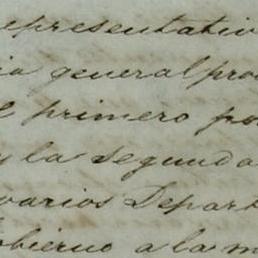 representativo
general pro
el primero po
y la segunda
varios Depart
obierno a la m